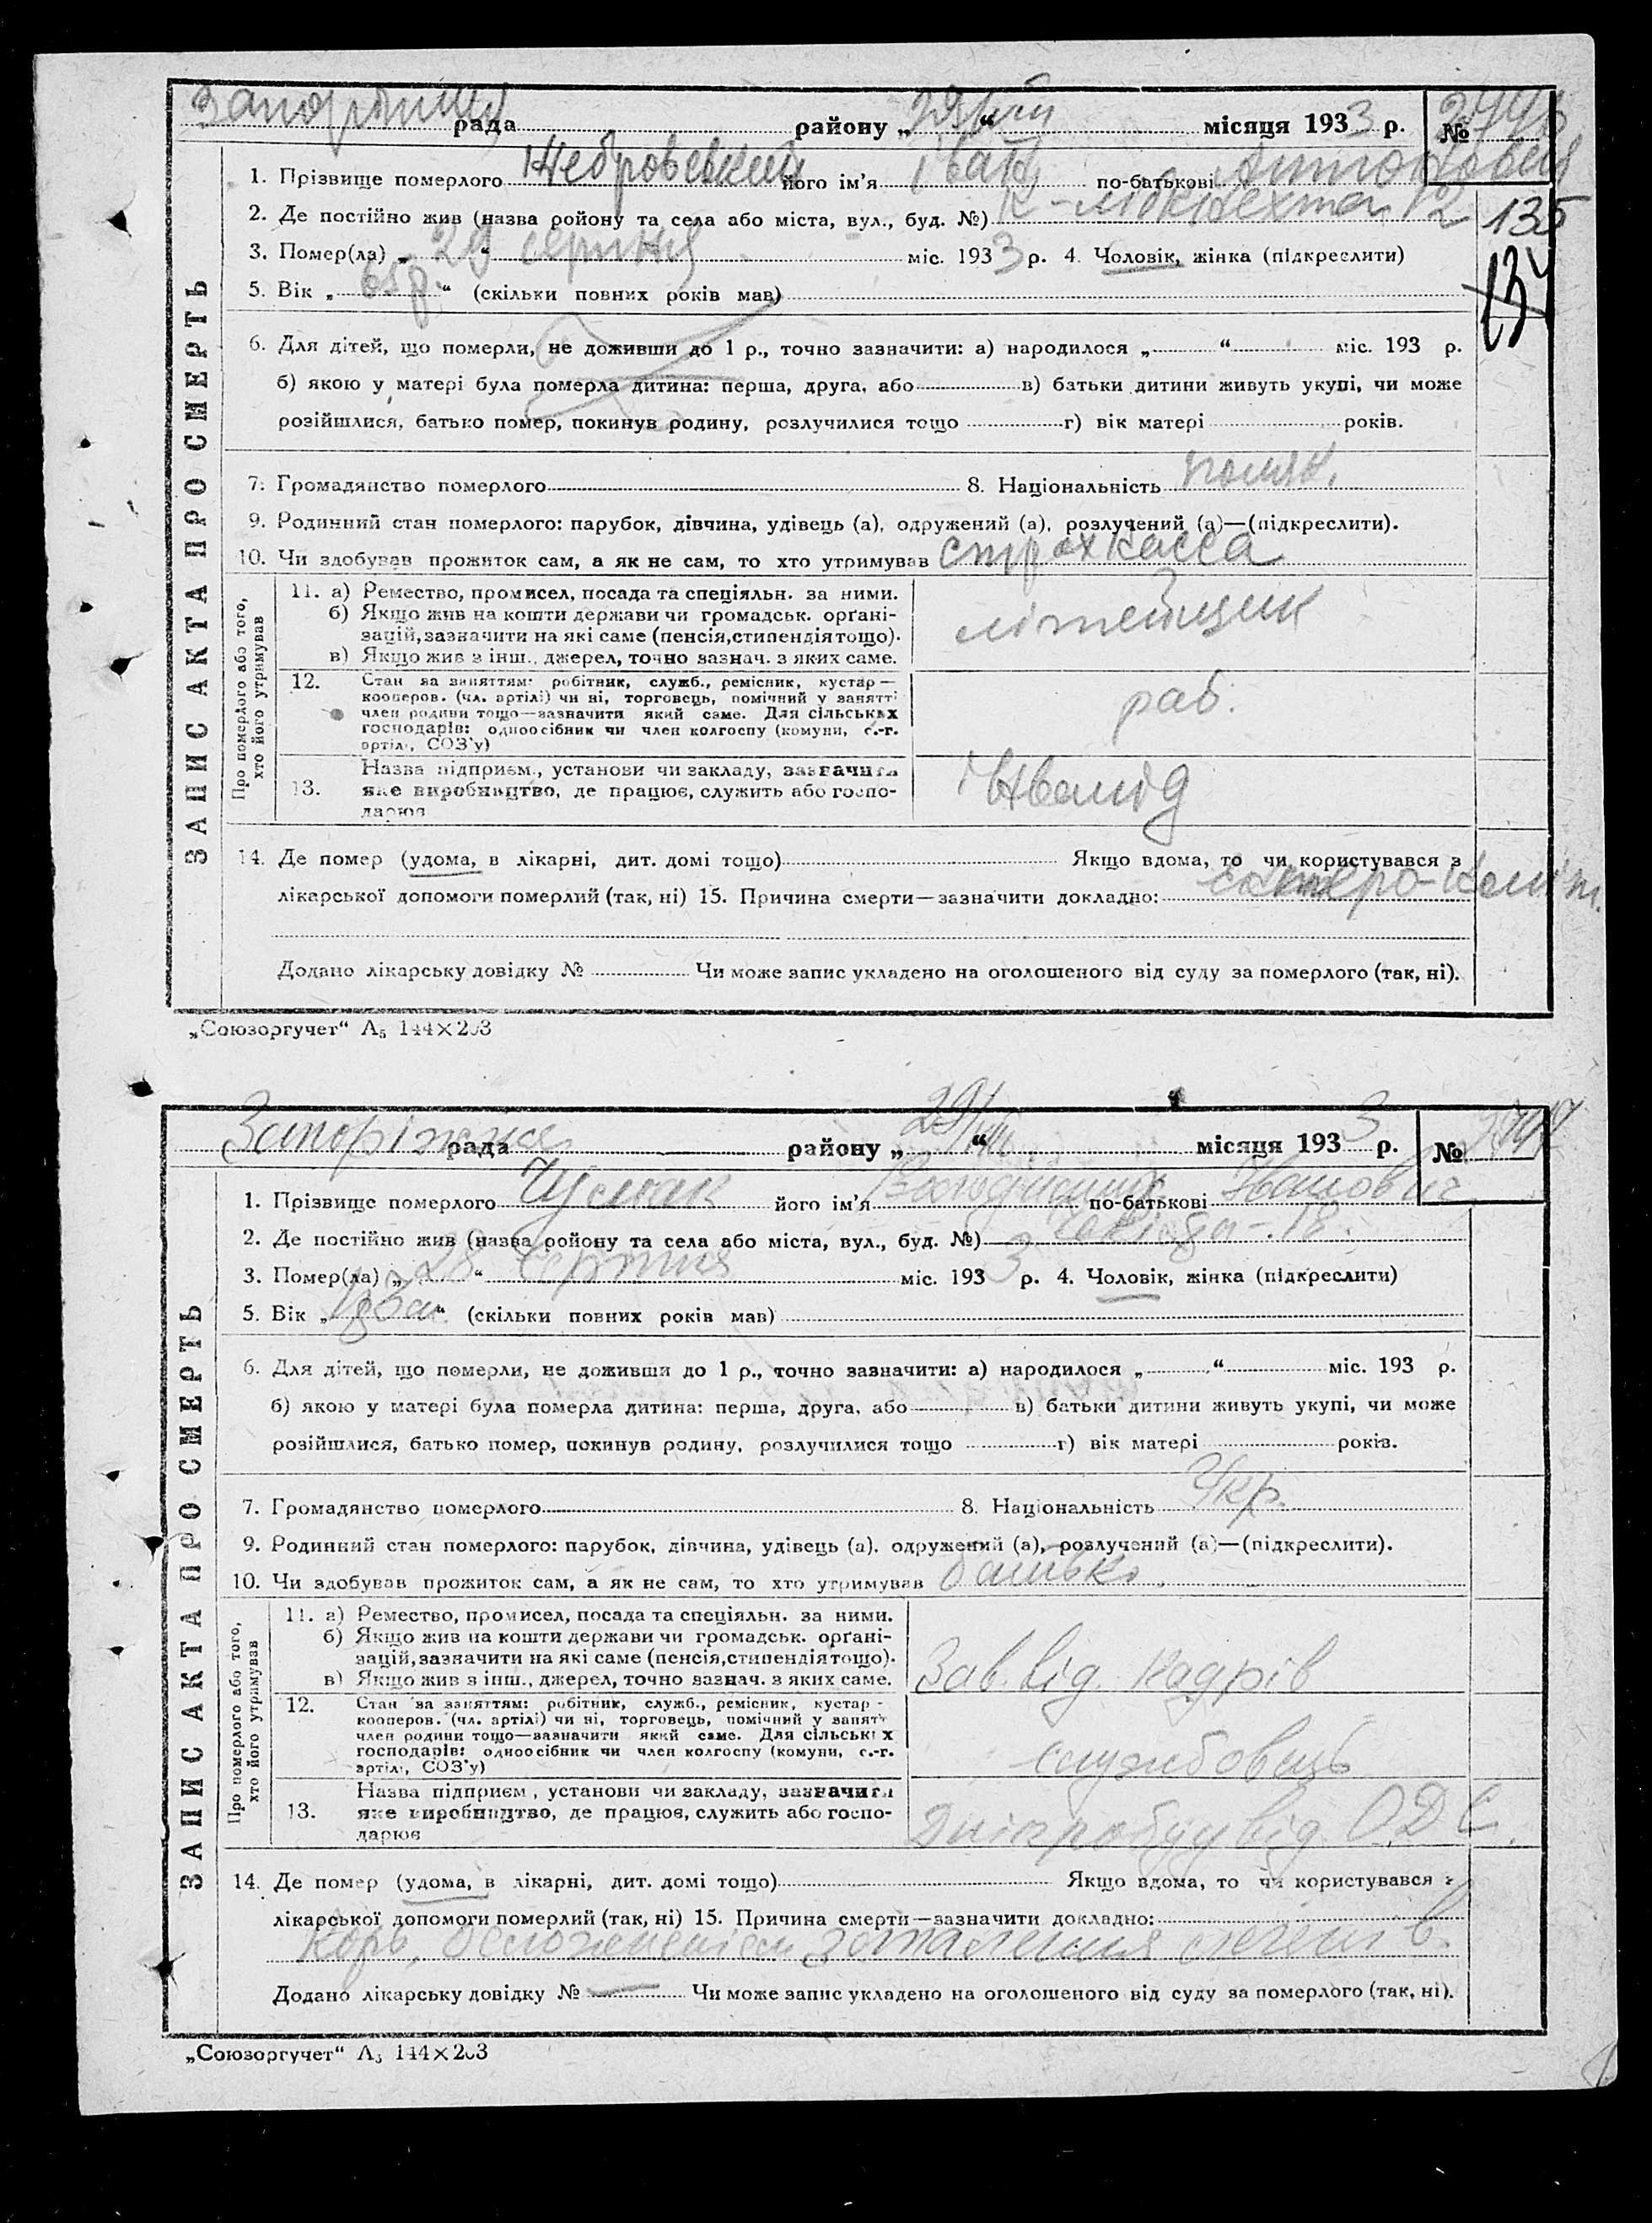 рада району „29/VIII“ місяця 1933 р. №
1. Прізвище померлого Жебровський його ім'я Іван по-батькові Антонович
2. Де постійно жив (назва ройону та села або міста, вул., буд. №) К-Лібкнехта 12 135
3. Помер(ла) „29“ серпня міс. 1933 р. 4. Чоловік, жінка (підкреслити)
5. Вік „65 р.“ (скільки повних років мав)
6. Для дітей, що померли, не доживши до 1 р., точно зазначити: а) народилося „ “ міс. 193 р.
б) якою у матері була померла дитина: перша, друга, або в) батьки дитини живуть укупі, чи може
розійшлися, батько помер, покинув родину, розлучилися тощо г) вік матері років.
7. Громадянство померлого 8. Національність поляк.
9. Родинний стан померлого: парубок, дівчина, удівець (а), одружений (а), розлучений (а)—(підкреслити).
10. Чи здобував прожиток сам, а як не сам, то хто утримував страхкасса
ЗАПИС АКТА ПРО СМЕРТЬ
Про померлого або того, хто його утримував
11. а) Ремество, промисел, посада та спеціяльн. за ними.
б) Якщо жив на кошти держави чи громадськ. орґані-
зацій, зазначити на які саме (пенсія, стипендія тощо).
в) Якщо жив з інш., джерел, точно зазнач. з яких саме.
літейщик
12. Стан за заняттям: робітник, служб., ремісник, кустар—
кооперов. (чл. артілі) чи ні, торговець, помічний у занятті
член родини тощо—зазначити який саме. Для сільських
господарів: одноосібник чи член колгоспу (комуни, с.-г.
артілі, СОЗ'у)
раб.
13. Назва підприєм., установи чи закладу, зазначити
яке виробництво, де працює, служить або госпо-
дарює
Інвалід
14. Де помер (удома, в лікарні, дит. домі тощо) Якщо вдома, то чи користувався з
лікарської допомоги померлий (так, ні) 15. Причина смерти—зазначити докладно:
Додано лікарську довідку № Чи може запис укладено на оголошеного від суду за померлого (так, ні).
„Союзоргучет“ А₅ 144×203
Запоріжжя рада району „29/VIII“ місяця 1933 р. №
1. Прізвище померлого Чумак його ім'я по-батькові Іванович
2. Де постійно жив (назва ройону та села або міста, вул., буд. №) 18.
3. Помер(ла) „28“ серпня міс. 1933 р. 4. Чоловік, жінка (підкреслити)
5. Вік „ “ (скільки повних років мав)
6. Для дітей, що померли, не доживши до 1 р., точно зазначити: а) народилося „ “ міс. 193 р.
б) якою у матері була померла дитина: перша, друга, або в) батьки дитини живуть укупі, чи може
розійшлися, батько помер, покинув родину, розлучилися тощо г) вік матері років.
7. Громадянство померлого 8. Національність Укр.
9. Родинний стан померлого: парубок, дівчина, удівець (а), одружений (а), розлучений (а)—(підкреслити).
10. Чи здобував прожиток сам, а як не сам, то хто утримував батько
ЗАПИС АКТА ПРО СМЕРТЬ
Про померлого або того, хто його утримував
11. а) Ремество, промисел, посада та спеціяльн. за ними.
б) Якщо жив на кошти держави чи громадськ. орґані-
зацій, зазначити на які саме (пенсія, стипендія тощо).
в) Якщо жив з інш., джерел, точно зазнач. з яких саме.
Зав. від. кадрів
12. Стан за заняттям: робітник, служб., ремісник, кустар-
кооперов. (чл. артілі) чи ні, торговець, помічний у занятті
член родини тощо—зазначити який саме. Для сільських
господарів: одноосібник чи член колгоспу (комуни, с.-г.
артілі, СОЗ'у)
службовець
13. Назва підприєм., установи чи закладу, зазначити
яке виробництво, де працює, служить або госпо-
дарює
Дніпробуд від. О.Д.С.
14. Де помер (удома, в лікарні, дит. домі тощо) Якщо вдома, то чи користувався з
лікарської допомоги померлий (так, ні) 15. Причина смерти—зазначити докладно:
Корь, запалення легенів.
Додано лікарську довідку № Чи може запис укладено на оголошеного від суду за померлого (так, ні).
„Союзоргучет“ А₅ 144×203